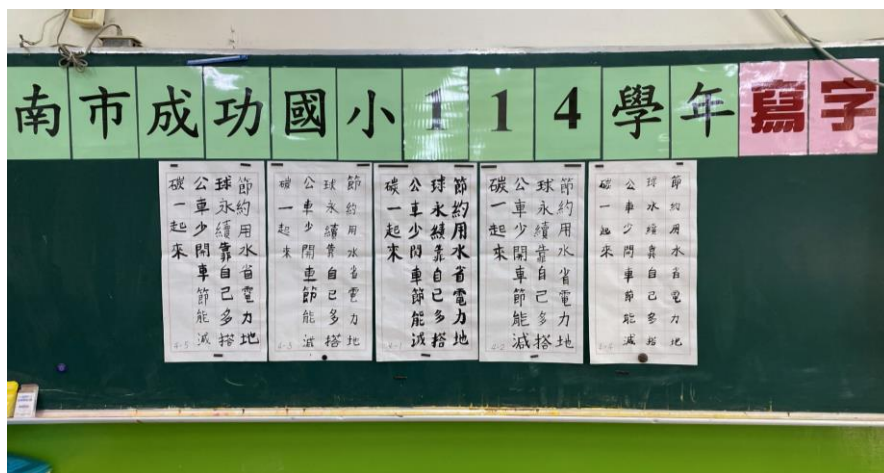 南市成功國小114學年寫字
節約用水省電力地
球永續靠自己多搭
公車少開車節能減
碳一起來
4-5
節約用水省電力地
球永續靠自己多搭
公車少開車節能減
碳一起來
4-3
節約用水省電力地
球永續靠自己多搭
公車少開車節能減
碳一起來
4-1
節約用水省電力地
球永續靠自己多搭
公車少開車節能減
碳一起來
4-2
節約用水省電力地
球永續靠自己多搭
公車少開車節能減
碳一起來